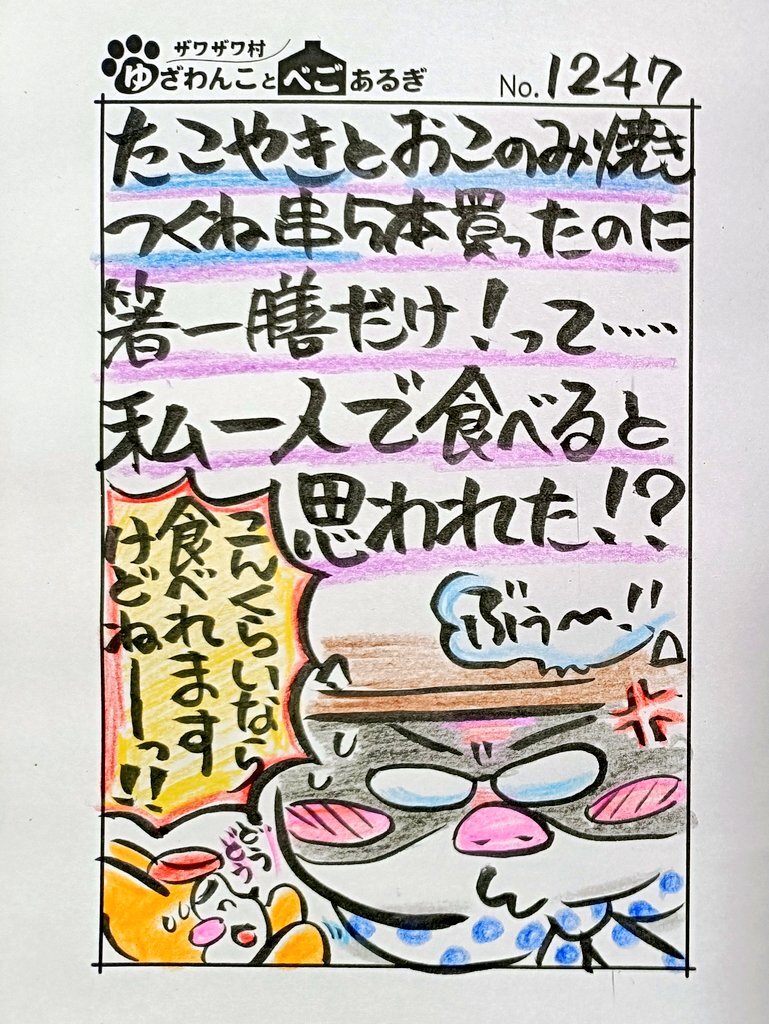 ザワザワ村
ゆざわんことべごあるぎ
No.1247
たこやきとおこのみ焼き
つくね串5本買ったのに
箸一膳だけ！って……
私一人で食べると
思われた！？
こんくらいなら
食べれます
けどねーっ！！
ぶぅ〜！！
どう
どう